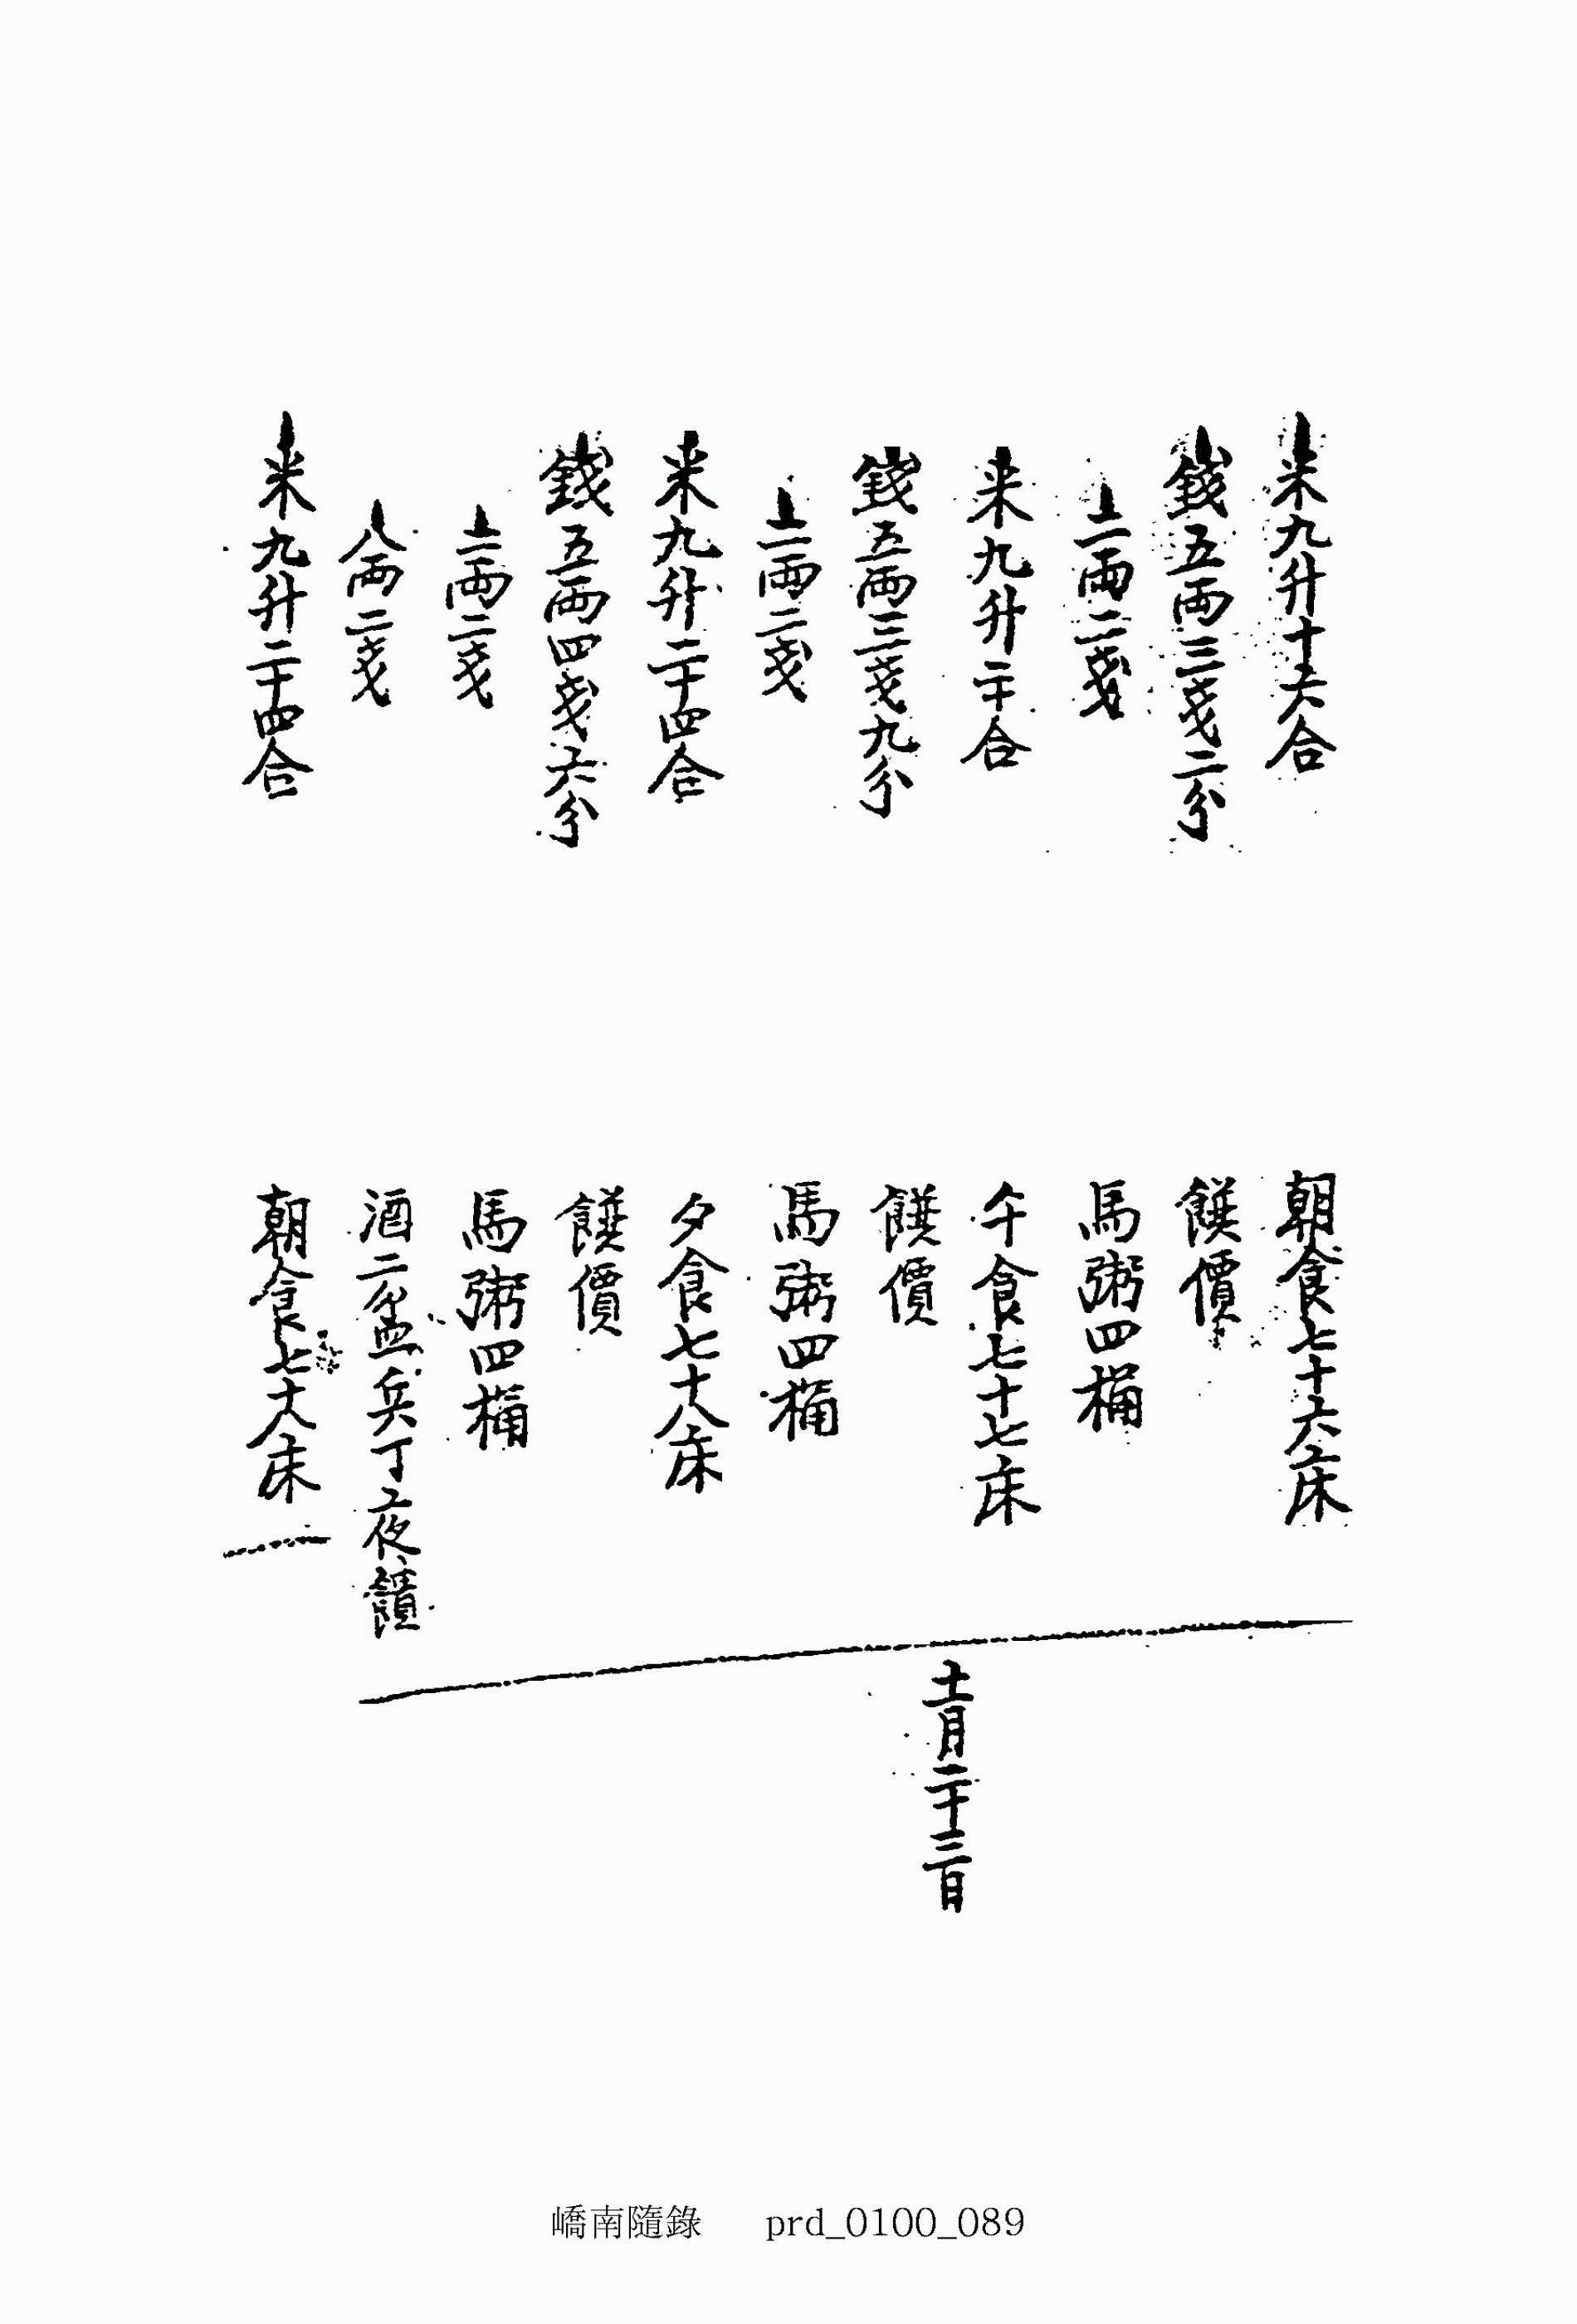 米九升十六合 朝食七十六床
錢五兩三戔二分 饌價
二兩二戔 馬粥四桶
米九升二十合 午食七十七床
錢五兩三戔九分 饌價
二兩二戔 馬粥四桶
米九升二十四合 夕食七十八床
錢五兩四戔六分 饌價
二兩二戔 馬粥四桶
八兩二戔 酒二盆兵丁夜饋
米九升二十四合 朝食七十八床
十一月二十三日
嶠南隨錄 prd_0100_089